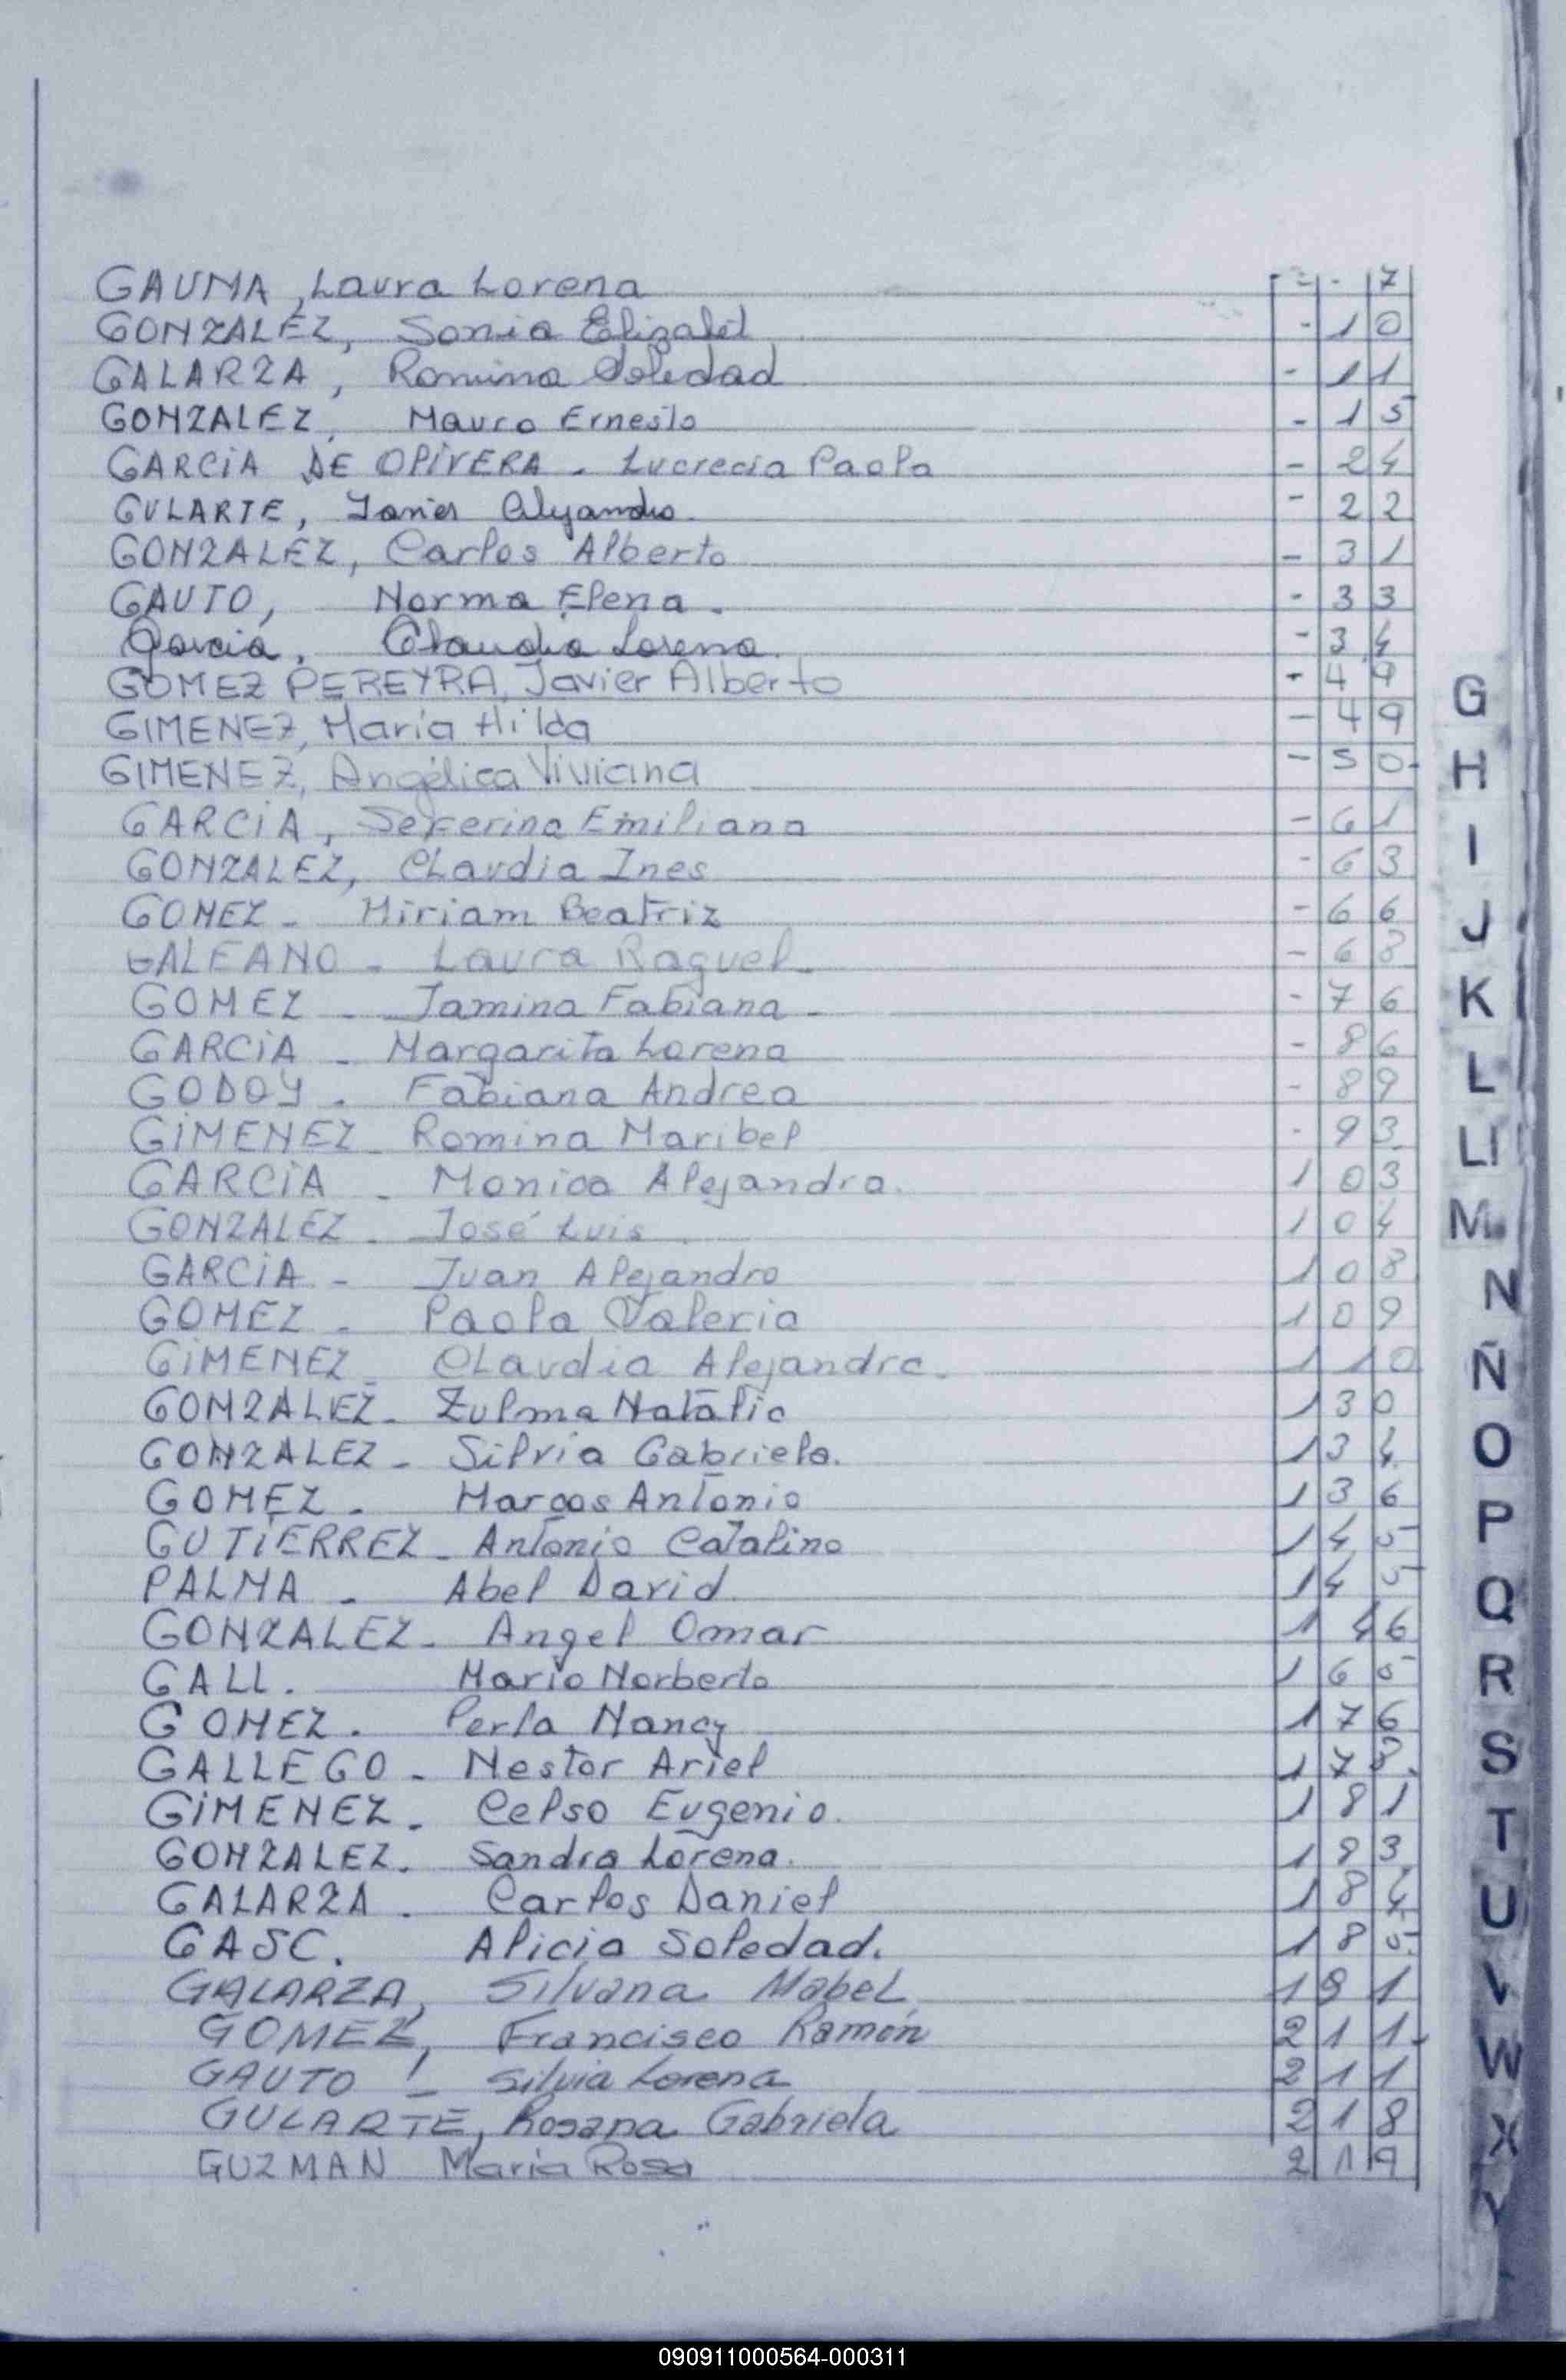 GAUNA, Laura Lorena - - 7
GONZALEZ, Sonia Elizabet - 1 0
GALARZA, Romina Soledad - 1 1
GONZALEZ, Mauro Ernesto - 1 5
GARCiA DE OLiVERA - Lucrecia Paola - 2 4
GULARTE, Javier Alejandro - 2 2
GONZALEZ, Carlos Alberto - 3 1
GAUTO, Norma Elena - - 3 3
Garcia, Claudia Lorena. - 3 4
GOMEZ PEREYRA, Javier Alberto - 4 9
GIMENEZ, María Hilda - 4 9
GIMENEZ, Angélica Viviana - 5 0
GARCiA, Severina Emiliana - 6 1
GONZALEZ, Claudia Ines - 6 3
GOMEZ - Miriam Beatriz - 6 6
GALEANO - Laura Raquel - - 6 8
GOMEZ - Jamina Fabiana - - 7 6
GARCiA - Margarita Lorena - 8 6
GODOY - Fabiana Andrea - 8 9
GiMENEZ - Romina Maribel - 9 3
GARCiA - Monica Alejandra. 1 0 3
GONZALEZ - José Luis 1 0 4
GARCiA - Juan Alejandro 1 0 8
GOMEZ - Paola Valeria 1 0 9
GiMENEZ - Claudia Alejandra - 1 1 0
GONZALEZ - Zulma Natalia 1 3 0
GONZALEZ - Silvia Gabriela. 1 3 4
GOMEZ - Marcos Antonio 1 3 6
GUTiERREZ - Antonio Catalino 1 4 5
PALMA - Abel David 1 4 5
GONZALEZ - Angel Omar 1 4 6
GALL. Mario Norberto 1 6 5
GOMEZ. Perla Nancy 1 7 6
GALLEGO - Nestor Ariel 1 7 8
GiMENEZ - Celso Eugenio. 1 8 1
GONZALEZ. Sandra Lorena. 1 8 3
GALARZA. Carlos Daniel 1 8 4
GASC. Alicia Soledad. 1 8 5
GALARZA, Silvana Mabel, 1 9 1
GOMEZ, Francisco Ramón 2 1 1
GAUTO - Silvia Lorena 2 1 1
GULARTE, Rosana Gabriela 2 1 8
GUZMAN María Rosa 2 1 9
G
H
I
J
K
L
Ll
M
N
Ñ
O
P
Q
R
S
T
U
V
W
X
Y
090911000564-000311